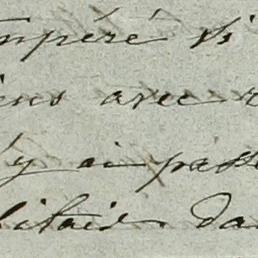 mpéré si
ens avec
y ai pass
litair da